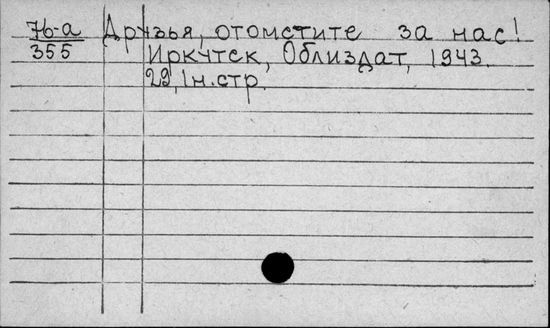 76-а Друзья, отомстите за нас!
355 Иркутск, Облиздат, 1943.
29, 1 н. стр.